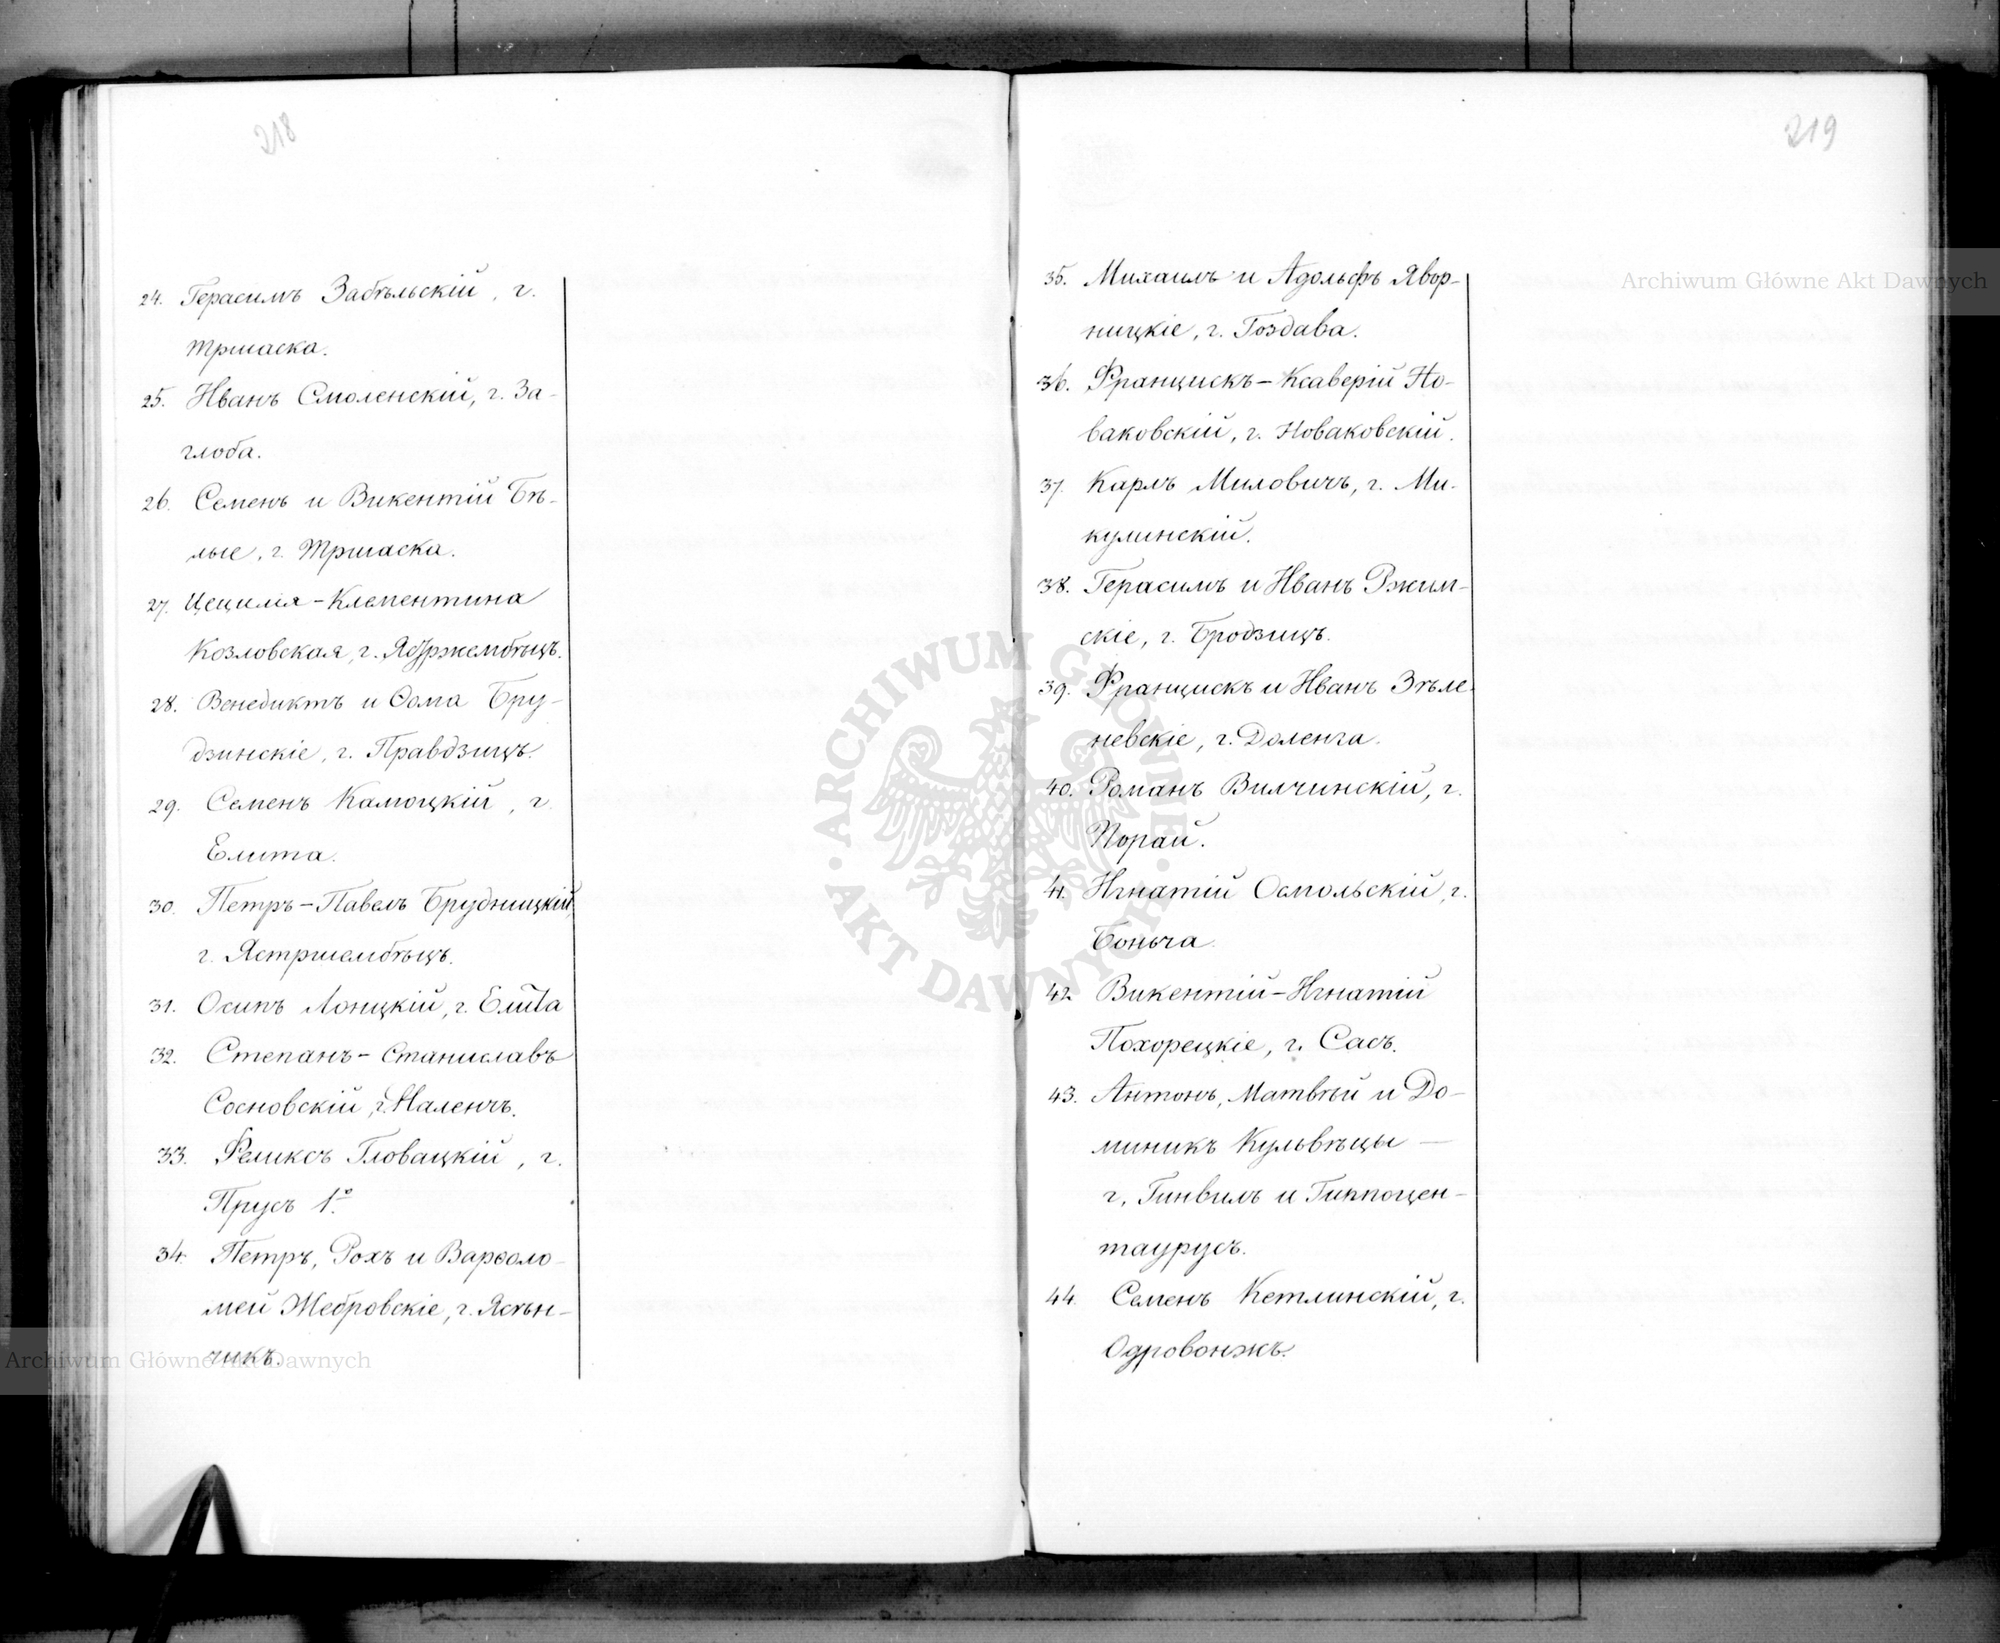 218
24. Герасимъ Забѣльскій, г.
Тршаска.
25. Иванъ Смоленскій, г. За-
глоба.
26. Семенъ и Викентій Бѣ-
лые, г. Тршаска.
27. Цецилія-Клементина
Козловская, г.
28. Венедиктъ и Ѳома Бру-
дзинскіе, г. Правдзицъ.
29. Семенъ Камоцкій, г.
Елита.
30. Петръ-Павелъ Брудницкій,
г. Ястршембѣцъ.
31. Осипъ Лонцкій, г. Елита
32. Степанъ-Станиславъ
Сосновскій, г. Наленчъ.
33. Феликсъ Гловацкій, г.
Прусъ 1º
34. Петръ, Рохъ и Варѳоло-
мей Жебровскіе, г. Ясѣн-
чикъ.
219
35. Михаилъ и Адольфъ Явор-
ницкіе, г. Гоздава.
36. Францискъ-Ксаверій Но-
ваковскій, г. Новаковскій.
37. Карлъ Миловичъ, г. Ми-
кулинскій.
38. Герасимъ и Иванъ Ржим-
скіе, г. Бродзицъ.
39. Францискъ и Иванъ Зѣле-
невскіе, г. Доленга.
40. Романъ Вилчинскій, г.
Порай.
41. Игнатій Осмольскій, г.
Боньча.
42. Викентій-Игнатій
Похорецкіе, г. Сасъ.
43. Антонъ, Матвѣй и До-
миникъ Кульвѣцы —
г. Гинвилъ и Гиппоцен-
таурусъ.
44. Семенъ Кетлинскій, г.
Одровонжъ.
Archiwum Główne Akt Dawnych
Archiwum Główne Akt Dawnych
· ARCHIWUM GŁÓWNE · AKT DAWNYCH